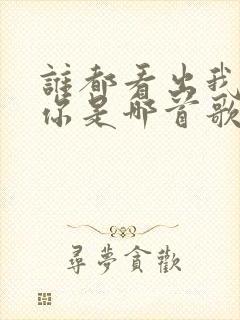 誰都看出我
你是哪首歌
尋夢貪歡